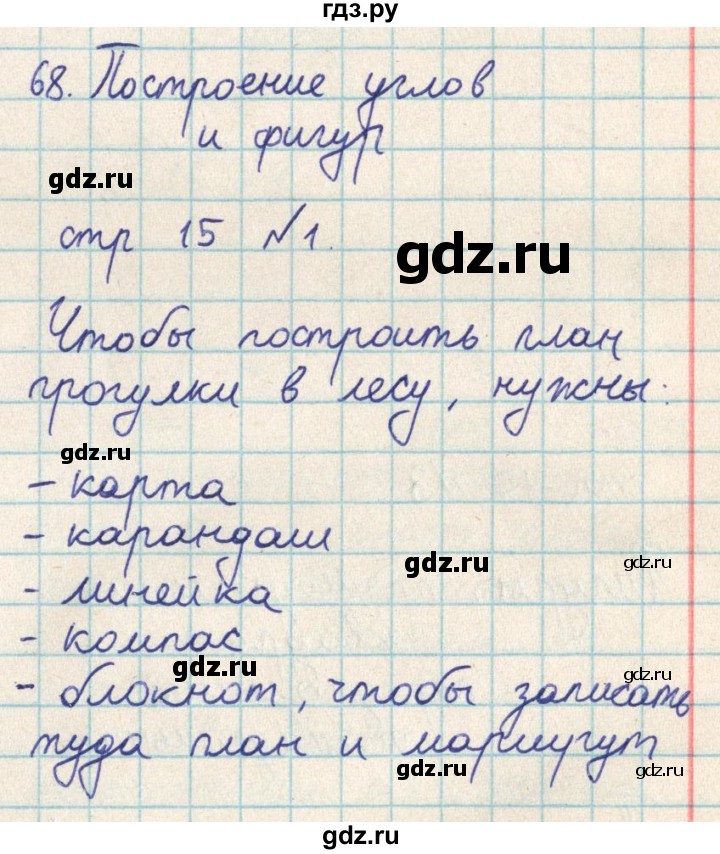 гдз.ру
68. Построение углов
и фигур
gdz.ru
стр 15 №1.
gdz.ru
Чтобы построить план
прогулки в лесу, нужны:
gdz.ru
- карта
- карандаш
gdz.ru
gdz.ru
- линейка
- компас
gdz.ru
gdz.ru
- блокнот, чтобы записать
туда план и маршугут
gdz.ru
gdz.ru
gdz.ru